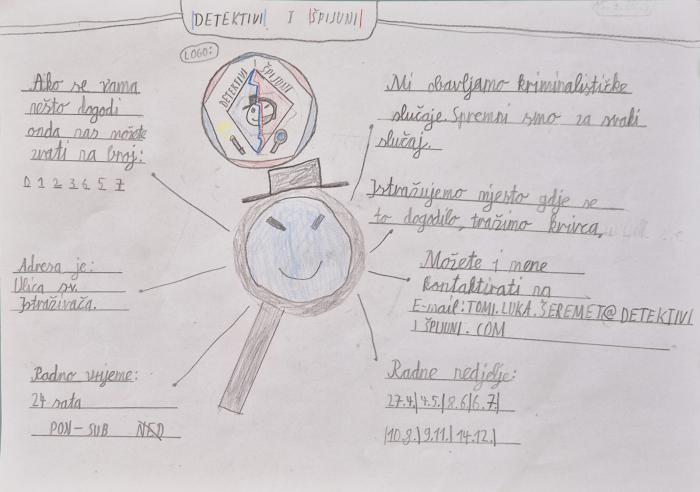 DETEKTIVI I ŠPIJUNI
LOGO:
DETEKTIVI I ŠPIJUNI
Ako se vama
nešto dogodi
onda nas možete
zvati na broj:
0 1 2 3 4 5 7
Adresa je:
Ulica sv.
Istraživača.
Radno vrijeme:
24 sata
PON-SUB NED
Mi obavljamo kriminalističke
slučaje. Spremni smo za svaki
slučaj.
Istražujemo mjesto gdje se
to dogodilo, tražimo krivca,
Možete i mene
kontaktirati na
E-mail: TOMI.LUKA.ŠEREMET@DETEKTIVI
I ŠPIJUNI.COM
Radne nedjelje:
27.4.|4.5.|8.6|6.7|
|10.8.|9.11.|14.12.|